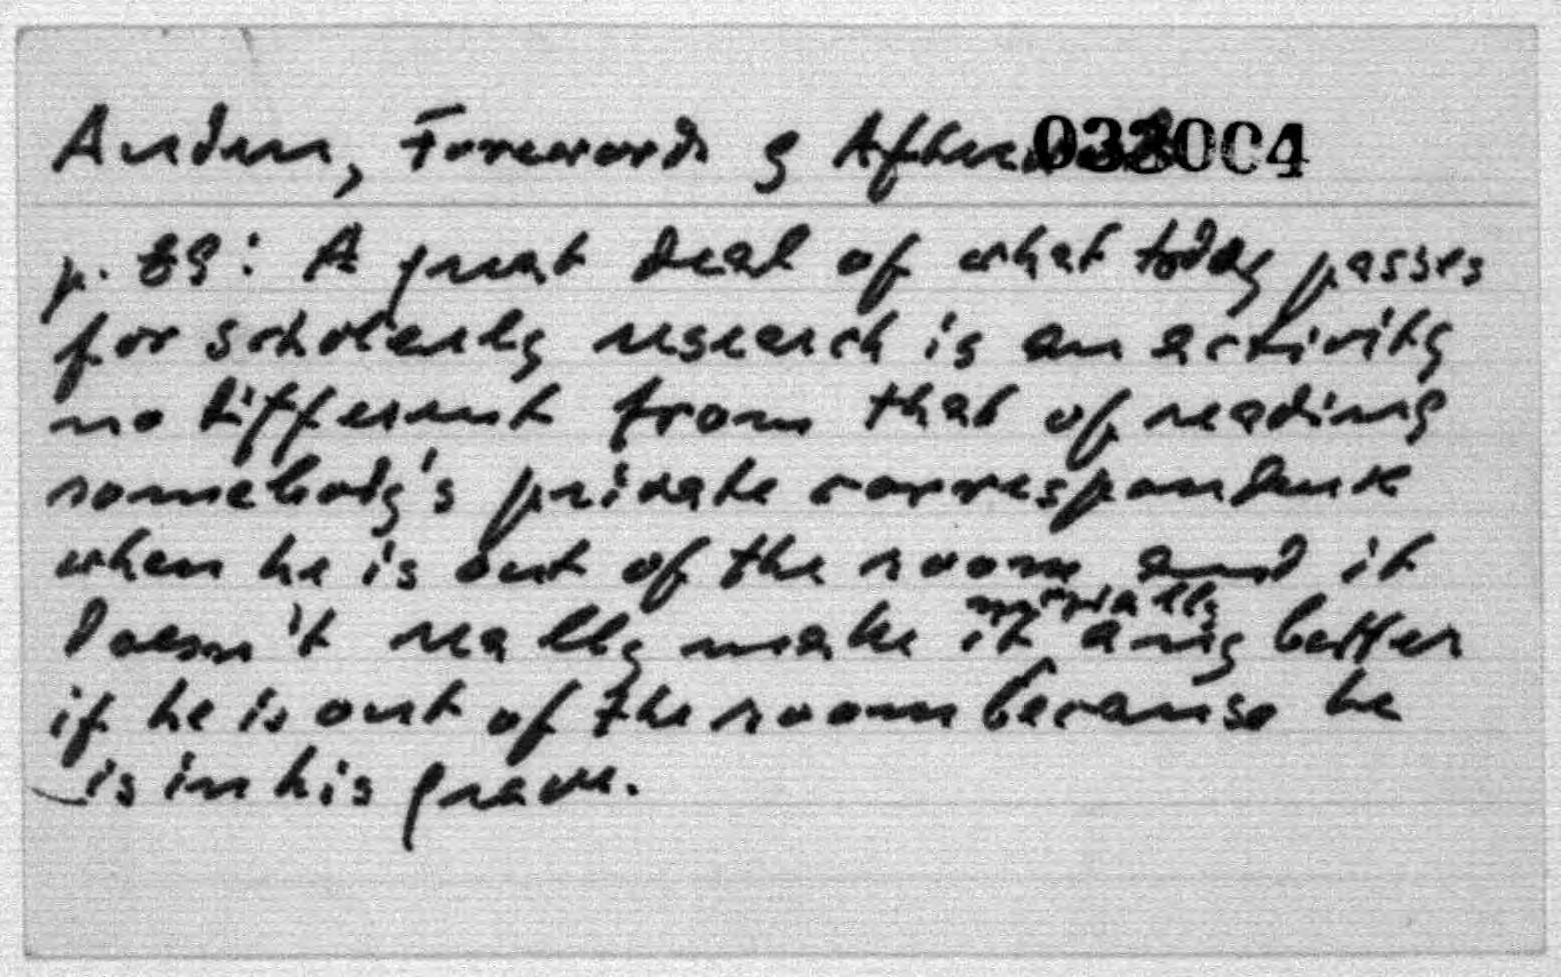 Auden, Forewords & After 033004
p. 89: A great deal of what today passes
for scholarly research is an activity
no different from that of reading
somebody's private correspondence
when he is out of the room, and it
doesn't really make it morally any better
if he is out of the room because he
is in his grave.